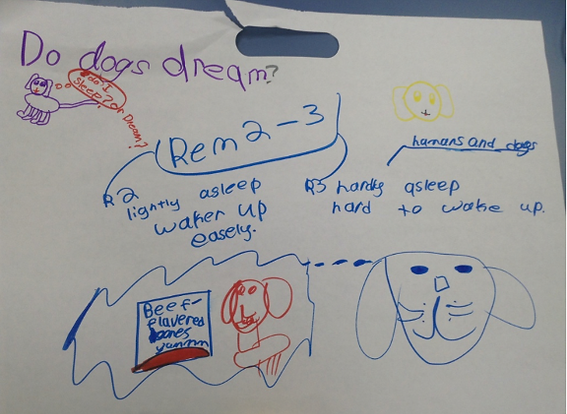 Do dogs dream?
do I
sleep? or Dream?
Rem 2-3
humans and dogs
R2
lightly asleep
waker up
easely.
R3 hardly asleep
hard to wake up.
Beef-
flavered
bones
yammm